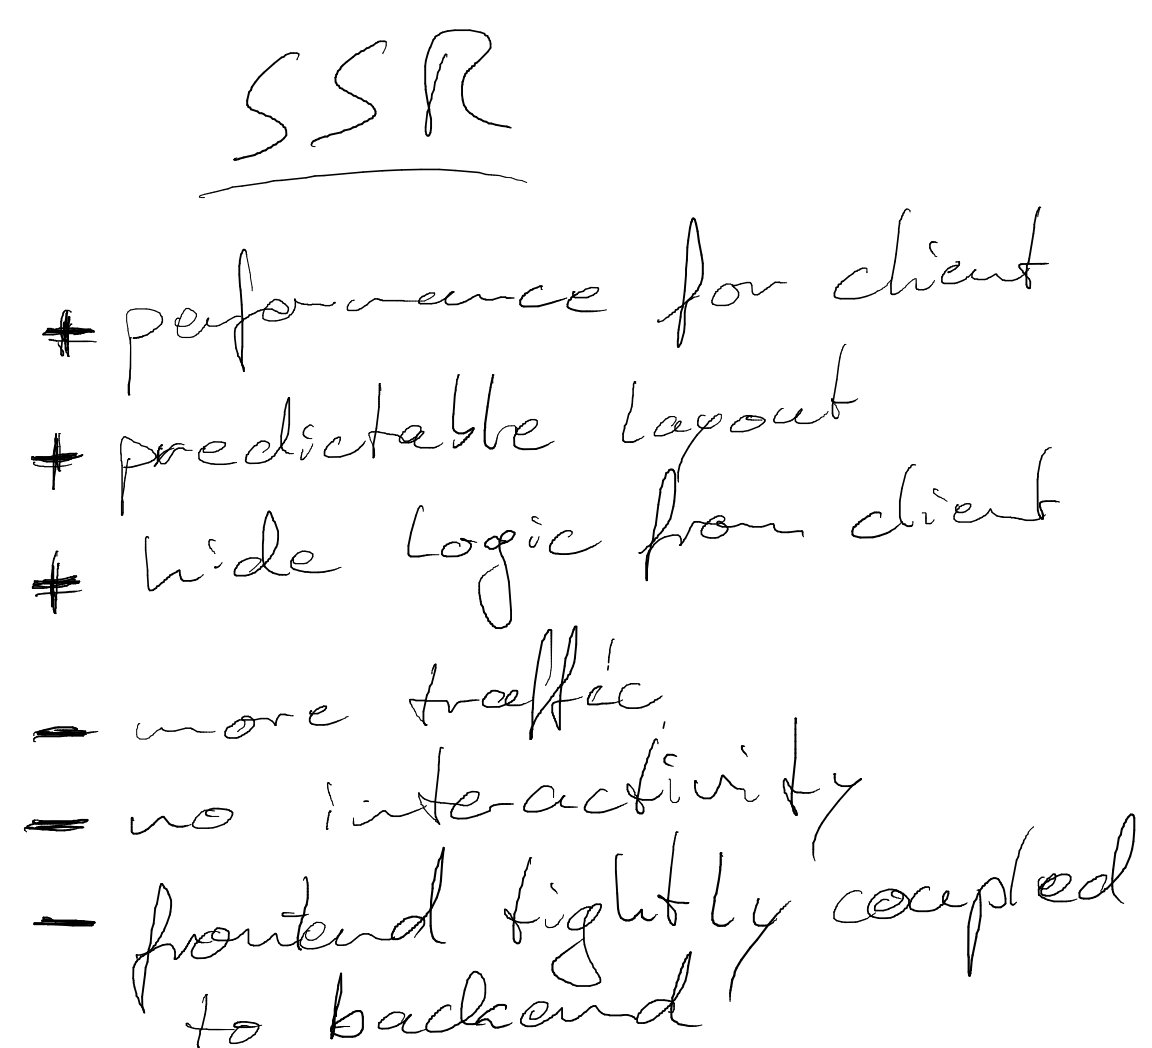 SSR
+ performance for client
+ predictable layout
+ hide logic from client
- more traffic
- no interactivity
- frontend tightly coupled
to backend